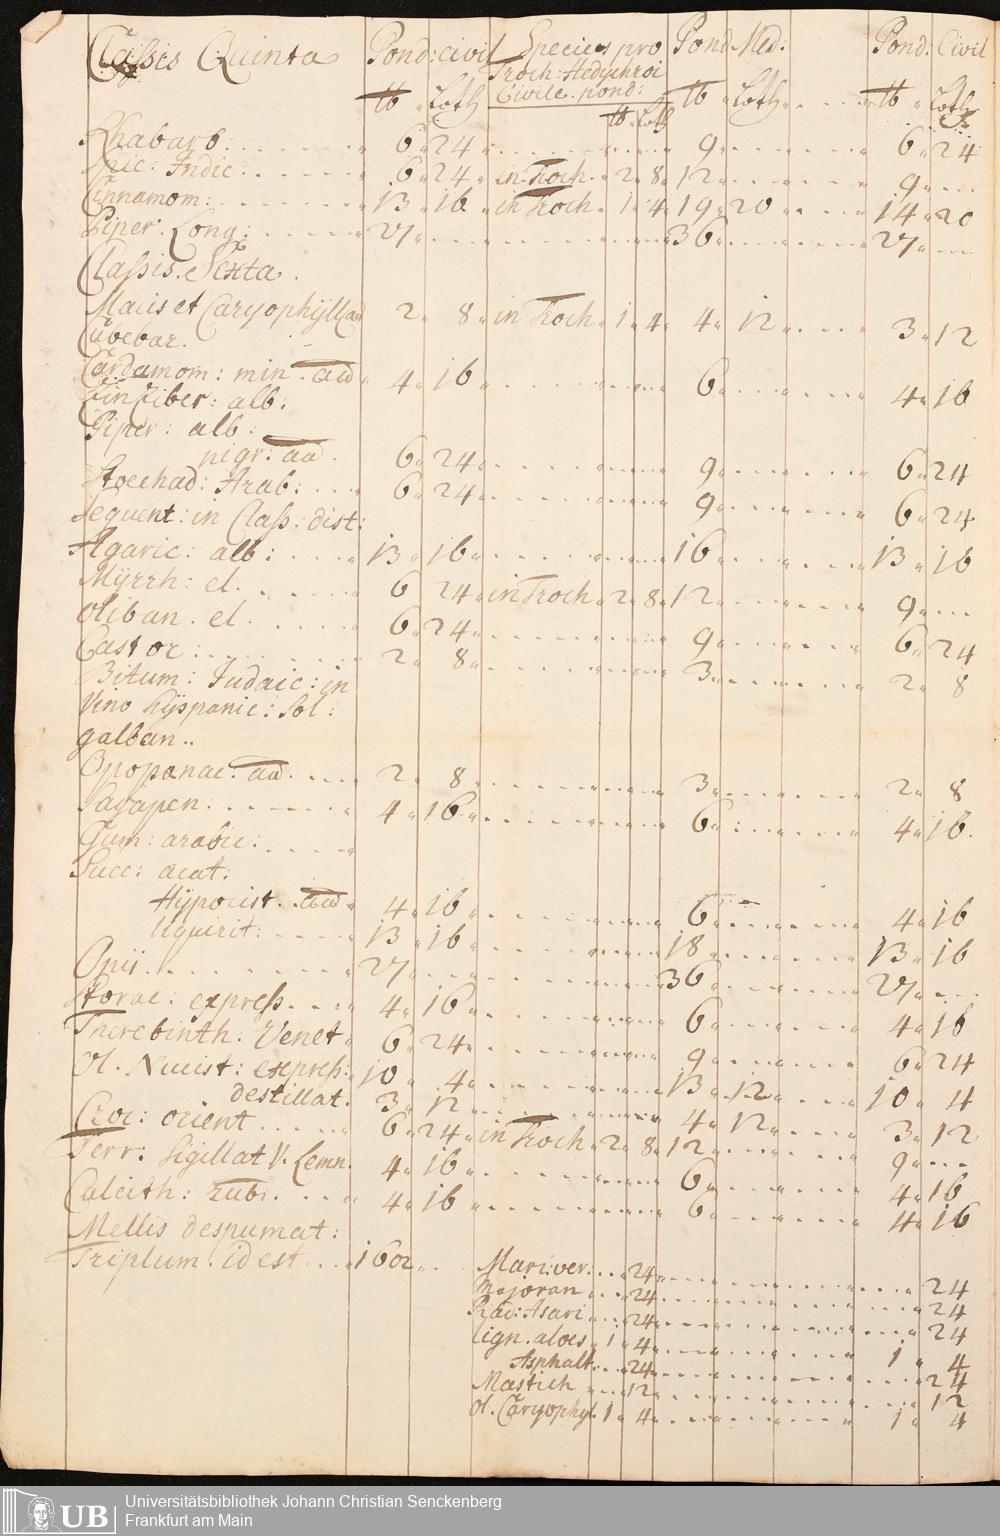 Classis Quinta Pond: civil Species pro Pond Med: Pond: Civil
Troch: Hedychroi
Civile. pond:
℔ Loth ℔ Loth ℔ Loth ℔ Loth
Rhabarb: 6 24 9 6 24
Spic: Indic: 6 24 in Troch. 2 8 12 9
Cinnamom: 13 16 in Troch. 1 4 19 20 14 20
Piper. Long: 27 36 27
Classis. Sexta.
Macis et Caryophyll aa 2 8 in Troch 1 4 4 12 3 12
Cubebar.
Cardamom: min. aa 4 16 6 4 16
Zinziber: alb:
Piper: alb:
nigr: aa. 6 24 9 6 24
Stoechad: Arab: 6 24 9 6 24
Sequent: in Class: dist:
Agaric: alb: 13 16 16 13 16
Myrrh: el. 6 24 in Troch 2 8 12 9
Oliban. el. 6 24 9 6 24
Castor: 2 8 3 2 8
Bitum: Judaic: in
Vino hyspanic: sol:
galban..
Opopanac. aa. 2 8 3 2 8
Sagapen: 4 16 6 4 16.
Gum: arabic:
Succ: acat:
Hypocist. aa 4 16 6 4 16
liquirit: 13 16 18 13 16
Opii. 27 36 27
Storac: express. 4 16 6 4 16
Therebinth: Venet 6 24 9 6 24
Ol. Nucist: express: 10 4 13 12 10 4
destillat. 3 12 4 12 3 12
Croc: orient 6 24 in Troch 2 8 12 9
Terr: Sigillat V. Lemn. 4 16 6 4 16
Calcith: rub: 4 16 6 4 16
Mellis despumat:
Triplum. id est 1602 Mari: ver: 24 24
Majoran 24 24
Rad: Asari 24 24
lign. aloes 1 4 1 4
Asphalt. 24 24
Mastich 12 12
ol. Caryophyl. 1 4 1 4
UB Universitätsbibliothek Johann Christian Senckenberg
Frankfurt am Main